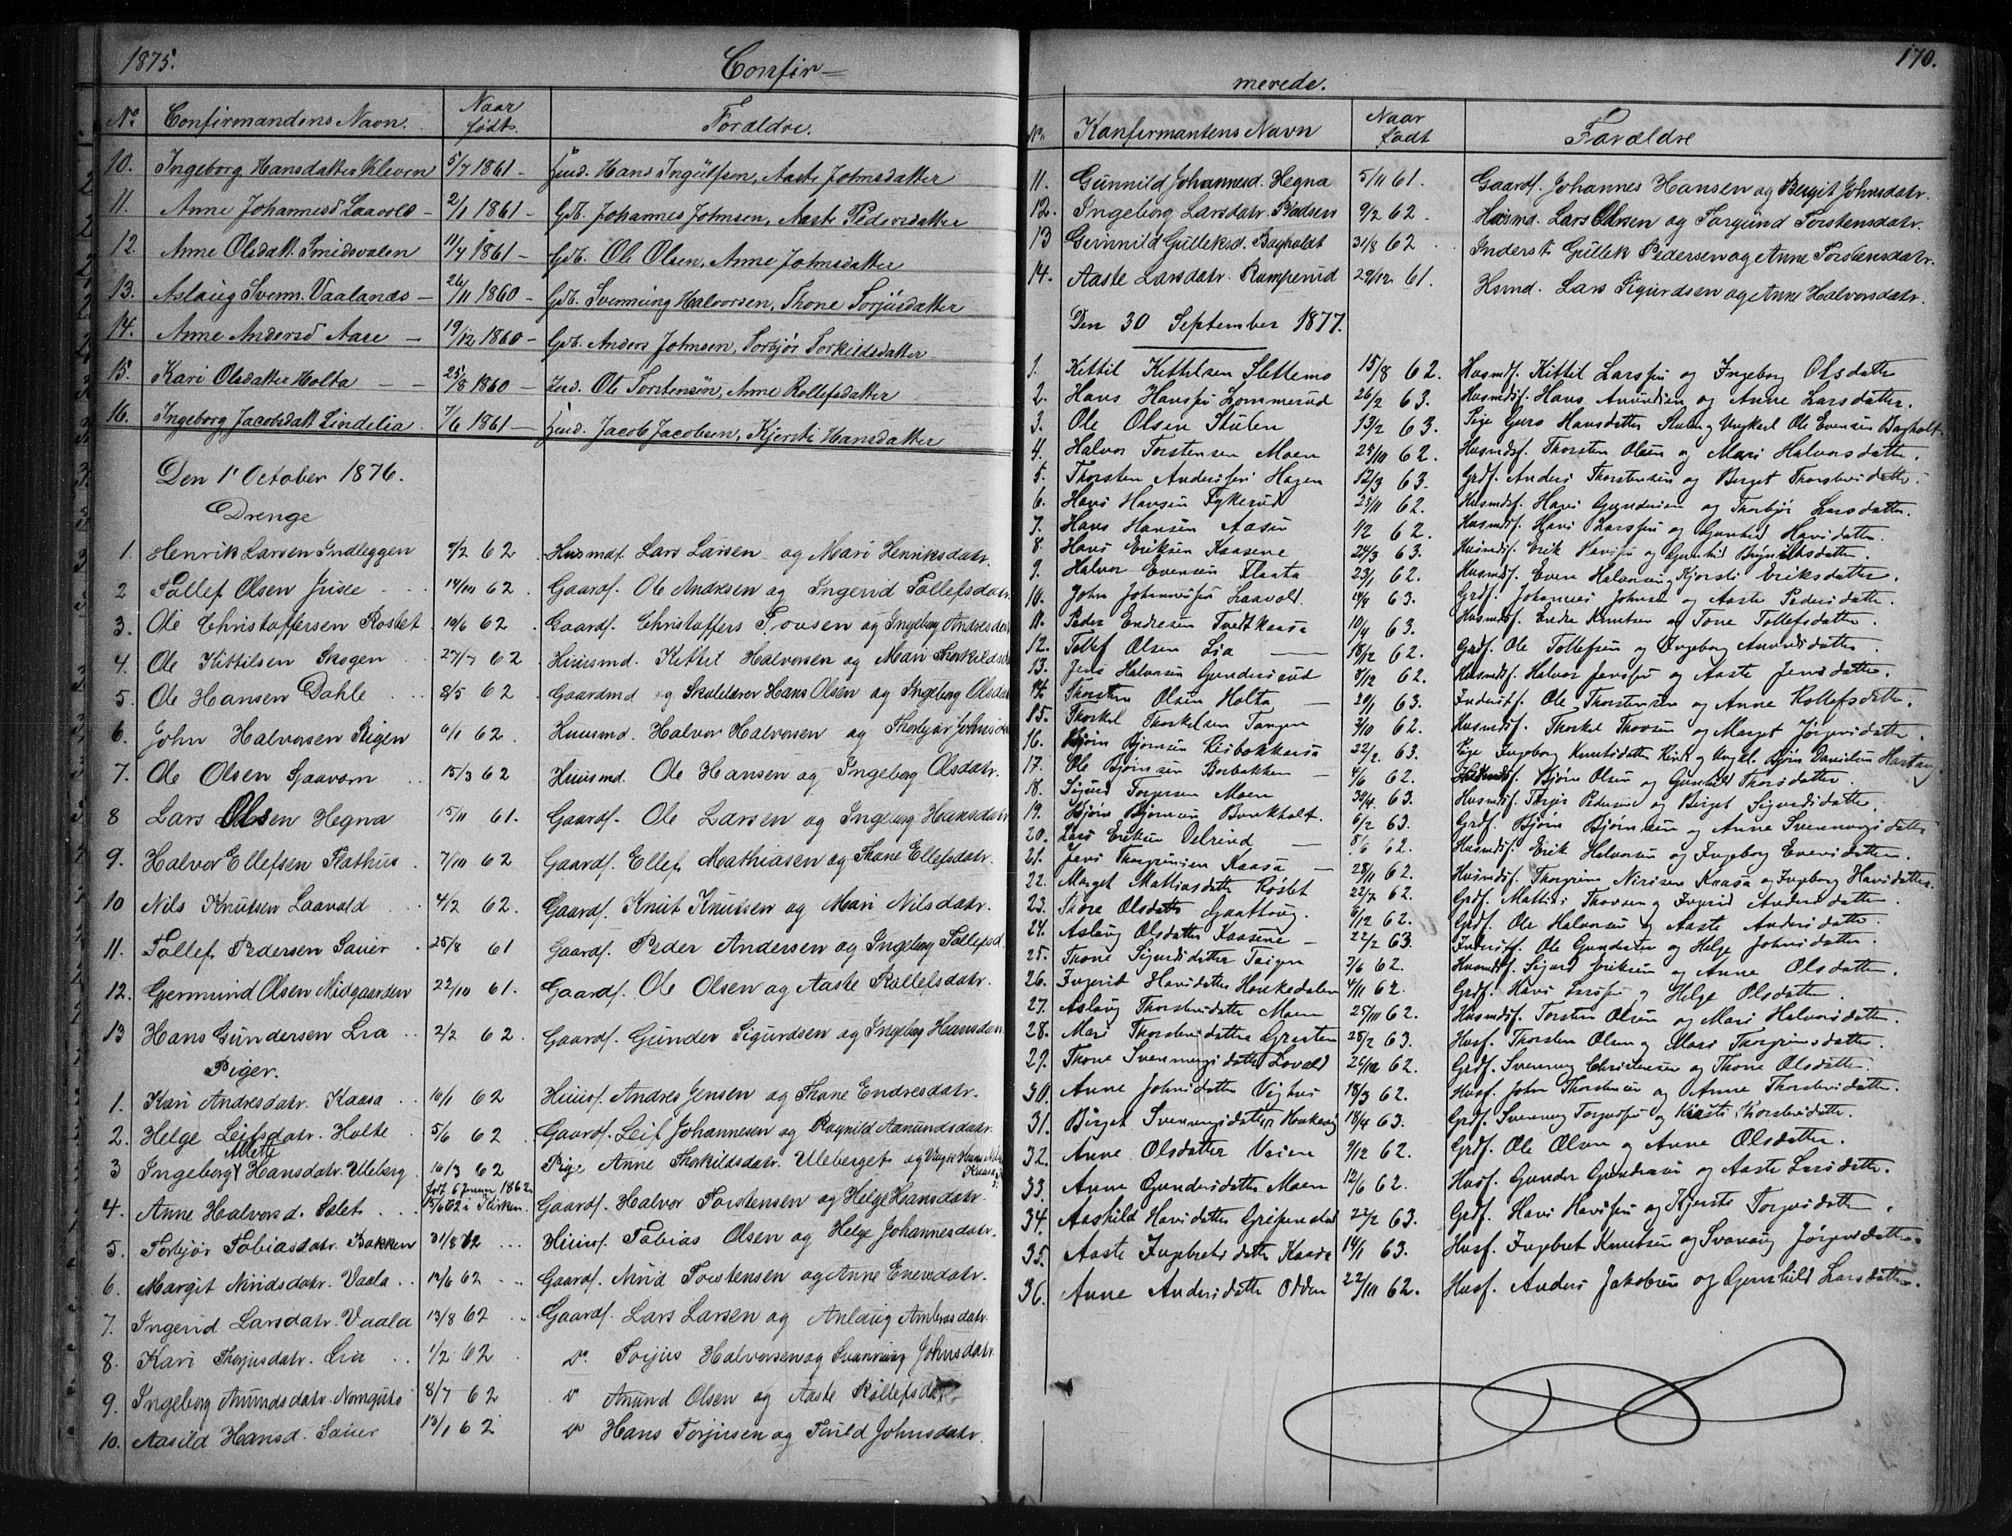 1875.
Confir=
No Confirmandens Navn. Naar født. Forældre.
10. Ingeborg Hansdatter Klevrn 5/7 1861 - Hans Ingulfsen, Aaste Johnsdatter
11. Anne Johannesd Laavold - 2/1 1861 - Gdb. Johannes Johnsen, Aaste Pedersdatter
12. Anne Olsdatt. Smedsvalen 11/4 1861 - Gdb. Ole Olsen, Anne Johnsdatter
13. Aslaug Svenn. Vaalands - 26/11 1860 - Gdb. Svennung Halvorsen, Thone Torjusdatter
14. Anne Andersd Aase - 19/12 1860 - Gdb. Anders Johnsen, Torbjør Torkildsdatter
15. Kari Olsdatter Holta - - 25/8 1860 - Ind. Ole Torstensøn, Anne Rollefsdatter
16. Ingeborg Jacobsdatt Lindelia. 7/6 1861 - Jacob Jacobsen, Kjersti Hansdatter
Den 1 October 1876.
Drenge
1. Henrik Larsen Indleggen 9/2 62. Huusmd. Lars Larsen og Mari Henriksdatr.
2 Tollef Olsen Jusle 14/10 62. Gaardf. Ole Andresen og Ingerid Tollefsdatr.
3. Ole Christoffersen Rostet 10/6 62. Gaardf. Christoffers Tovsen og Ingeborg Andresdatr
4. Ole Kittilsen Skogen 27/7 62 Huusmd. Kettil Halvorsen og Mari Thorkildsd
5. Ole Hansen Dahle 8/5 62. Gaardmd og Skolelærer Hans Olsen og Ingeborg Olsdatr
6. John Halvorsen Rigen 6/1 62. Huusmd. Halvor Halvorsen og Thorbjør Johnsdatr
7. Ole Olsen Gaavarn 15/3 62 Huusmd. Ole Hansen og Ingeborg Olsdatr.
8 Lars Olsen Hegna 15/11 61. Gaardf. Ole Larsen og Ingeborg Hansdatr
9. Halvor Ellefsen Flathus 7/10 62 Gaardf. Ellef Mathiasen og Thone Ellefsdatr.
10 Nils Knutsen Laavald 4/2 62. Gaardf. Knut Knutsen og Mari Nilsdatr.
11. Tollef Pedersen Sauer 25/8 61 Gaardf. Peder Andersen og Ingeborg Tollefsd
12. Gjermund Olsen Midgaarden 22/10 61. Gaardf. Ole Olsen og Aaste Rollefsdatr.
13 Hans Gundersen Lia 2/2 62. Gaardf. Gunder Sigurdsen og Ingeborg Hansdatr
Piger.
1. Kari Andresdatr. Kaasa 10/1 62 Huusf. Andres Jensen og Thone Endresdatr.
2. Helge Leifsdatr. Holte 5/6 62. Gaardf. Leif Johannesen og Ragnild Aamundsdatr
3 Ingeborg Anette Hansdatr. Uleberg. 10/3 62 Pige Anne Thorkildsdatr. Uleberget og
født 6 Januar 1862
4. Anne Halvorsd. Sslet 15/6 62 i Kirken. Gaardf. Halvor Torstensen og Helge Hansdatr.
5. Torbjør Tobiasdatr. Bakken 31/8 62 Huusf. Tobias Olsen og Helge Johannesdatr.
6. Margit Nirids datr. Vaala 14/6 62 Gaardf. Nirid Torstensen og Anne Enersdatr.
7. Ingerid Larsdatr. Vaala 13/8 62 Gaardf. Lars Larsen og Anlaug
8. Kari Thorjusdatr. Lia 1/2 62 Do Torjus Halvorsen og Svanaug Johnsdatr
9. Ingeborg Anundsdatr. 8/7 62 Do Anund Olsen og Aaste Rollefsdatr
10. Aasild Hansd. Sauer 13/1 62 Do Hans Torjusen og Turild Johnsdatr.
170.
merede.
No Konfirmantens Navn Naar født Forældre
11. Gunnild Johannesd. Hegna 5/11 61. Gaardf. Johannes Hansen og Bergit Johnsdatr.
12. Ingeborg Larsdatr. 9/2 62. Husmd. Lars Olsen og Torgund Torstensdatr.
13 Gunnild Gulleksd. Bagholdt 31/8 62 Inderst Gullek Pedersen og Anne Torstensdatr.
14. Aaste Larsdatr. Ramperud 29/12 61. Husmd. Lars Sigurdsen og Anne Halvorsdatr.
Den 30 September 1877.
1. Kittil Kittilsen Slettemo 15/8 62. Husmdsf. Kittil Larssøn og Ingeborg Olsdatter
2. Hans Hanssøn Lommerud 26/2 63. Husmdsf. Hans Anundsen og Anne Larsdatter.
3. Ole Olsen Stulen 13/2 63. Pige Guro Hansdatter Stulen og Ungkarl Ole Evensen Bagholt.
4. Halvor Torstensen Moen 25/10 62. Husmdsf. Thorsten Olsen og Mari Halvorsdatter.
5. Thorsten Anderssøn Hagen 12/3 63. Grdf. Anders Thorstensen og Berget Thorstensdatter.
6. Hans Hansen Tykerud 25/11 62. Husmdsf. Hans Gundersen og Thorbjør Larsdatter.
7. Hans Hansen Aasen 1/2 62. Husmdsf. Hans Larssøn og Gunhild Hansdatter.
8. Hans Eriksen Kaasene 24/3 63. Husmdsf. Erik Hanssøn og Gunhild Brynildsdatter.
9. Halvor Evensen Flaata 23/1 62. Husmdsf. Even Halvorsen, Kjersti Eriksdatter.
10. John Johannessøn Laavold. 14/8 63. Grdf. Johannes Johnsen og Aaste Pedersdatter.
11. Peder Endresen Tvedtkaasa 10/4 63. Husmdsf. Endre Knutsen og Tone Tollefsdatter.
12. Tollef Olsen Lia 18/12 62. Grdf. Ole Tollefsen og Ingeborg Anundsdatter.
13. Jens Halvorsen Gundersrud 3/12 62. Husmdsf. Halvor Jenssøn og Aaste Jensdatter.
14. Thorsten Olsen Holta 20/1 63. Inderstf. Ole Thorstensen og Anne Rollefsdatter.
15. Thorkel Thorkelsen Tangen 3/10 62. Husmdsf. Thorkel Thovsen og Marget Jørgensdatter.
16. Bjørn Bjørnsen Lisbakkaasa 22/2 63. Pige Ingeborg Knutsdatter og Ungkl. Bjørn Danielsen
17. Ole Bjørnsen Borbakken 4/6 62. Husmdsf. Bjørn Olsen og Gunhild Thorsdatter.
18. Sigurd Torgersen Moen 30/4 63. Husmdsf. Torger Pedersen og Berget Sigurdsdatter.
19. Bjørn Bjørnsen Bookholt. 6/2 63. Grdf. Bjørn Bjørnsen og Anne Svennungsdatter
20. Lars Eriksen Oelrud 8/6 62. Husmdsf. Erik Halvorsen og Ingeborg Evensdatter
21. Jens Thorgrimsen Kaasa 28/11 62. Husmdsf. Thorgrim Nirisen Kaasa og Ingeborg Hansdatter.
22. Marget Mathiasdatter Røstet 22/7 62. Grdf. Mathias Thovsen og Ingrid Andersdatter.
23. Thore Olsdatter Gaattoug. 6/12 62. Grdf. Ole Halvorsen og Aaste Andersdatter.
24. Aslaug Olsdatter Kaasene 22/2 63. Inderstf. Ole Gundersen og Helge Johnsdatter.
25. Thone Sigurdsdatter Taigen 7/6 62. Husmdsf. Sigurd Eriksen og Anne Olsdatter.
26. Ingerid Hansdatter Haukedalen 4/11 62. Grdf. Hans Larssøn og Helge Olsdatter.
27. Aslaug Thorstensdatter Moen 25/10 62. Husmdsf. Torsten Olsen og Mari Halvorsdatter.
28. Mari Thorstensdatter Grasten 25/2 63. Husf. Thorsten Olsen og Mari Thorgrimsdatter.
29. Thone Svennungsdatter Lovald 26/12 62. Grdf. Svennung Christensen og Thone Olsdatter.
30. Anne Johnsdatter 18/3 62. Husf. John Thorstensen og Anne Thorstensdatter.
31. Berget Svennungsdatter Haukaas 18/4 63. Grdf. Svennung Torjussøn og Kirsti Thorstensdatter.
32. Anne Olsdatter Vaien 9/12 62. Grdf. Ole Olsen og Anne Olsdatter.
33. Anne Gundersdatter Moen 12/6 62. Husf. Gunder Gundersen og Aaste Larsdatter.
34. Aashild Hansdatter Gripenstad 22/2 63. Grdf. Hans Hanssøn og Kjerste Torgersdatter.
35. Aaste Ingebretsdatter Kaasa 14/1 63. Husf. Ingebret Knutsen og Svanaug Jørgensdatter.
36. Anne Andersdatter Odden 22/10 62. Husf. Anders Jakobsen og Gunhild Larsdatter.